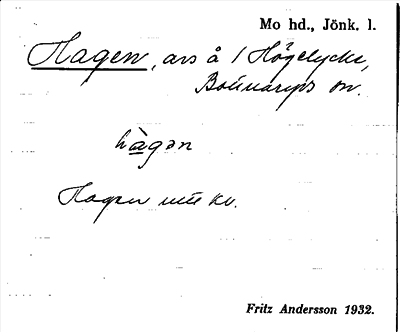 Mo hd., Jönk. l.
Hagen, avs å 1 Högelycke,
Bolinarps sn.
hàgən
Hagen kv.
Fritz Andersson 1932.